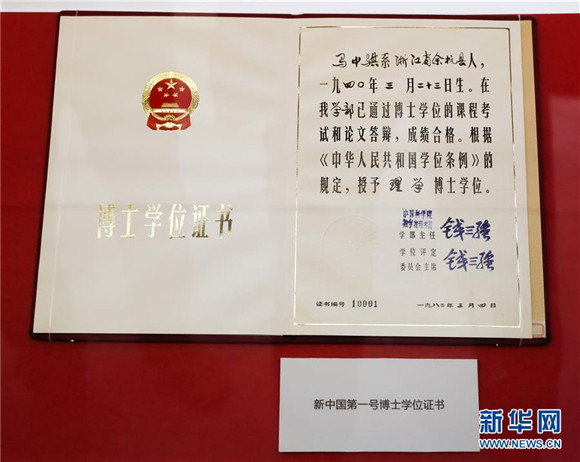 博士学位证书
马中骐系浙江省余杭县人，
一九四〇年三月二十三日生。在
我学部已通过博士学位的课程考
试和论文答辩，成绩合格。根据
《中华人民共和国学位条例》的
规定，授予理学博士学位。
中国科学院
数学物理学部
学部主任 钱三强
学位评定
委员会主席 钱三强
证书编号 10001
一九八二年三月四日
新中国第一号博士学位证书
新华网
WWW.NEWS.CN